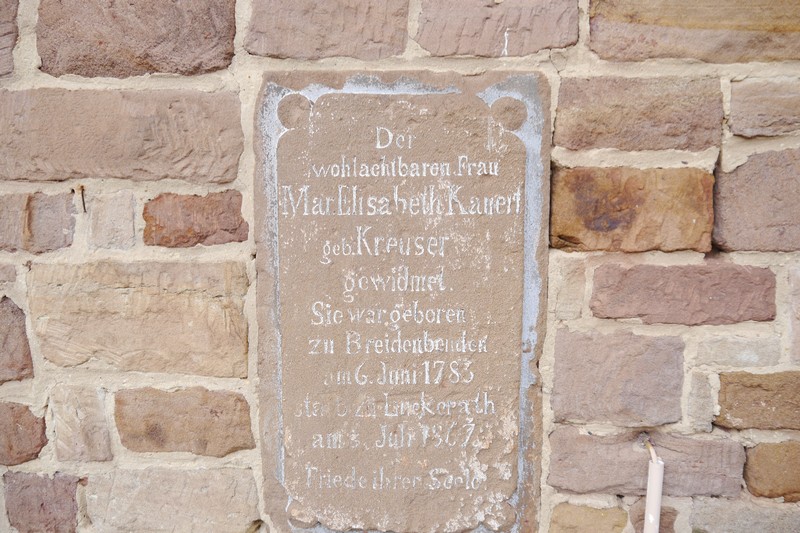 Der
wohlachtbaren Frau
Mar. Elisabeth Kauert
geb. Kreuser
gewidmet.
Sie war geboren
zu Breidenbenden
am 6. Juni 1783
starb zu Lückerath
am Juli
Friede ihrer Seele